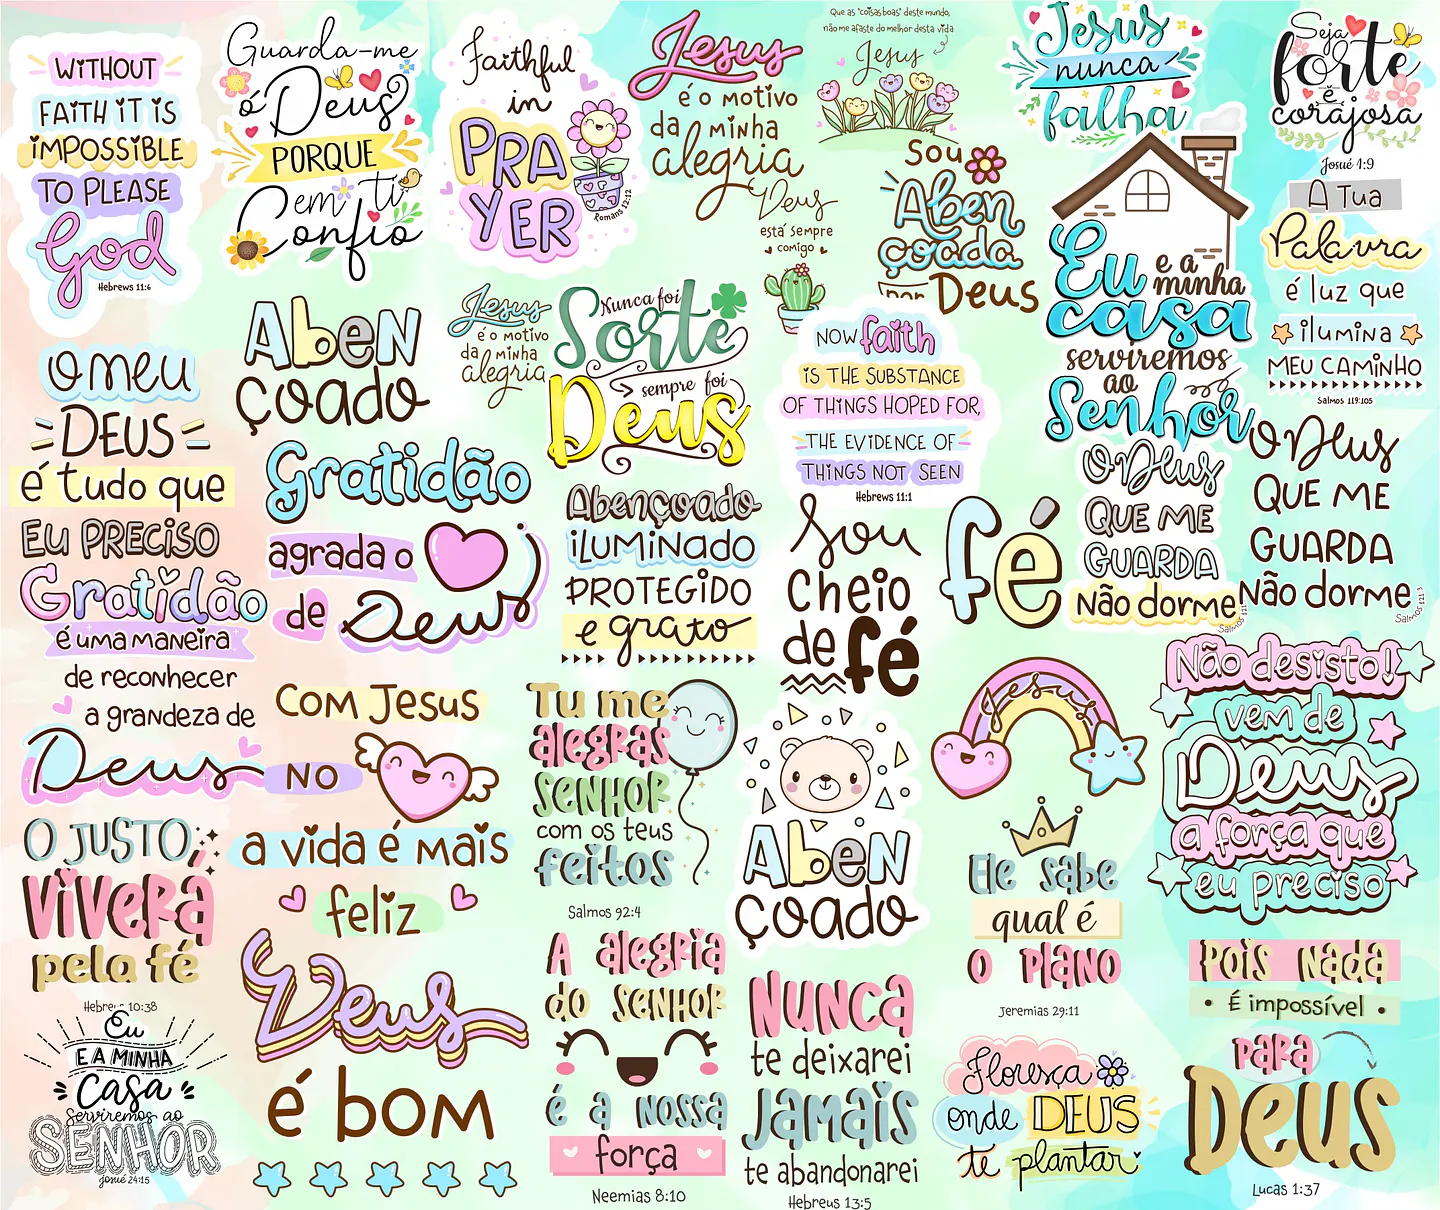 WITHOUT
FAITH IT IS
IMPOSSIBLE
TO PLEASE
God
Hebrews 11:6
Guarda-me
ó Deus
PORQUE
em ti
Confio
Faithful
in
PRA
YER
Romans 12:12
Jesus
é o motivo
da minha
alegria
Deus
está sempre
comigo
Que as "coisas boas" deste mundo,
não me afaste do melhor desta vida
Jesus
Sou
Aben
çoada
por Deus
Jesus
nunca
falha
Seja
forte
e
corajosa
Josué 1:9
A Tua
Palavra
é luz que
ilumina
MEU CAMINHO
Salmos 119:105
Eu e a
minha
casa
serviremos
ao
Senhor
O meu
DEUS
é tudo que
EU PRECISO
Aben
çoado
Jesus
é o motivo
da minha
alegria
Nunca foi
Sorte
sempre foi
Deus
NOW faith
IS THE SUBSTANCE
OF THINGS HOPED FOR,
THE EVIDENCE OF
THINGS NOT SEEN
Hebrews 11:1
O Deus
QUE ME
GUARDA
Não dorme
Salmos 121:3
O Deus
QUE ME
GUARDA
Não dorme
Salmos 121:3
Gratidão
agrada o
de Deus
Abençoado
iLUMINADO
PROTEGIDO
e grato
Sou
cheio
de fé
fé
Gratidão
é uma maneira
de reconhecer
a grandeza de
Deus
Com Jesus
NO
a vida é mais
feliz
Tu me
alegras
SENHOR
com os teus
feitos
Salmos 92:4
Aben
çoado
Jesus
Não desisto!
vem de
Deus
a força que
eu preciso
O JUSTO
VIVERÁ
pela fé
Hebreus 10:38
Eu
E A MINHA
Casa
Serviremos ao
SENHOR
Josué 24:15
Deus
é bom
A alegria
do SENHOR
é a nossa
força
Neemias 8:10
Nunca
te deixarei
Jamais
te abandonarei
Hebreus 13:5
Ele sabe
qual é
o plano
Jeremias 29:11
Floresça
onde DEUS
te plantar
Pois nada
É impossível
para
Deus
Lucas 1:37